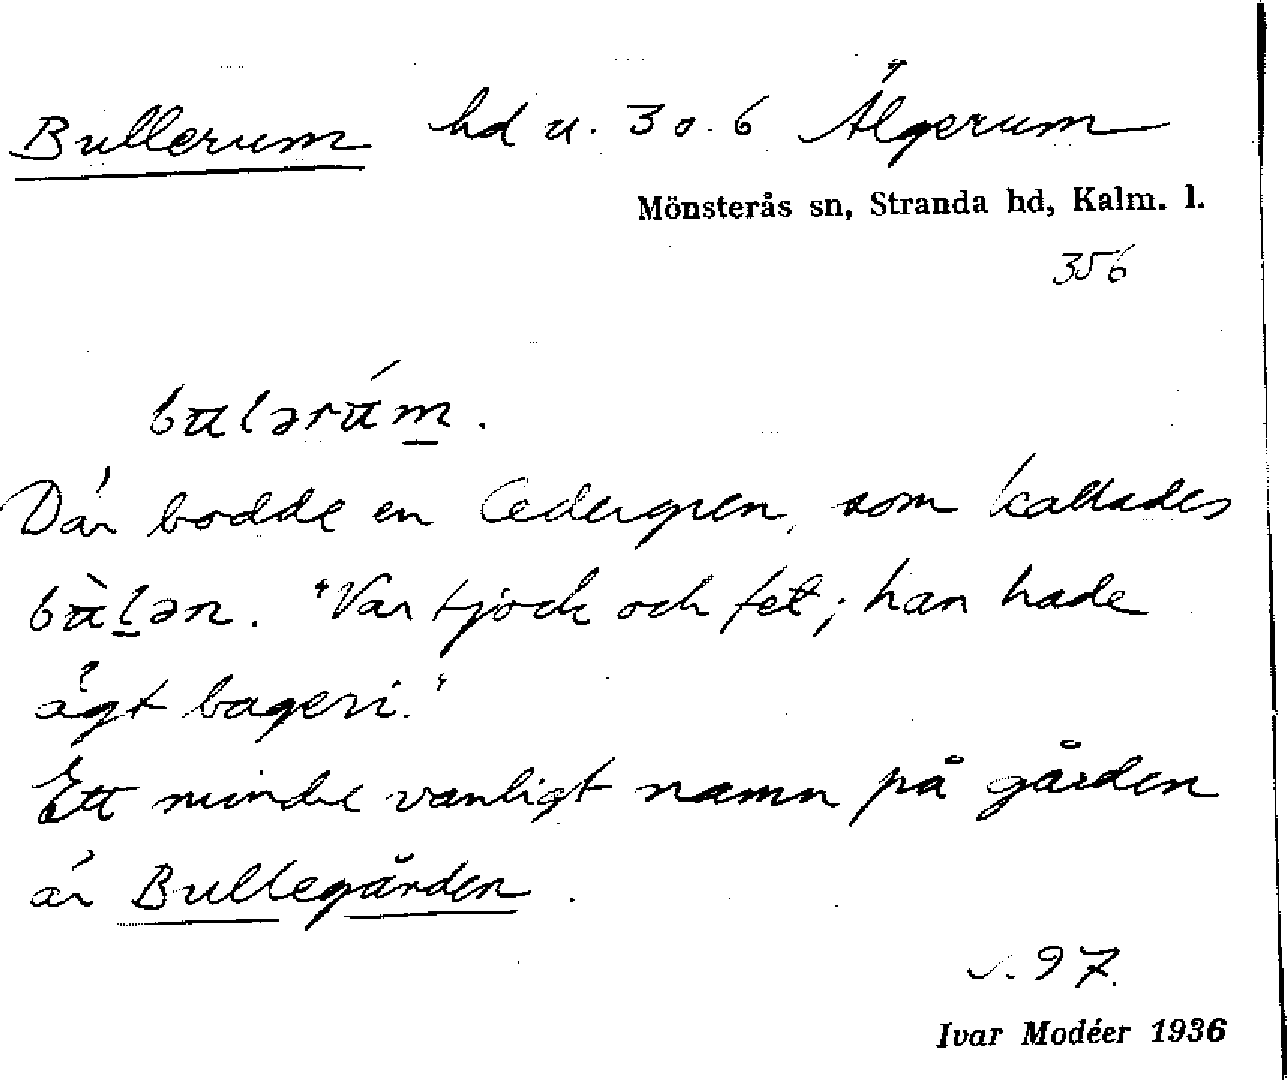 Bullerum hd u. 3 o. 6 Älgerum
Mönsterås sn, Stranda hd, Kalm. l.
356
bulərúm.
Där bodde en Cedergren, som kallades
bùlən. "Var tjock och fet; han hade
ägt bageri."
Ett mindre vanligt namn på gården
är Bullegården.
s. 97.
Ivar Modéer 1936